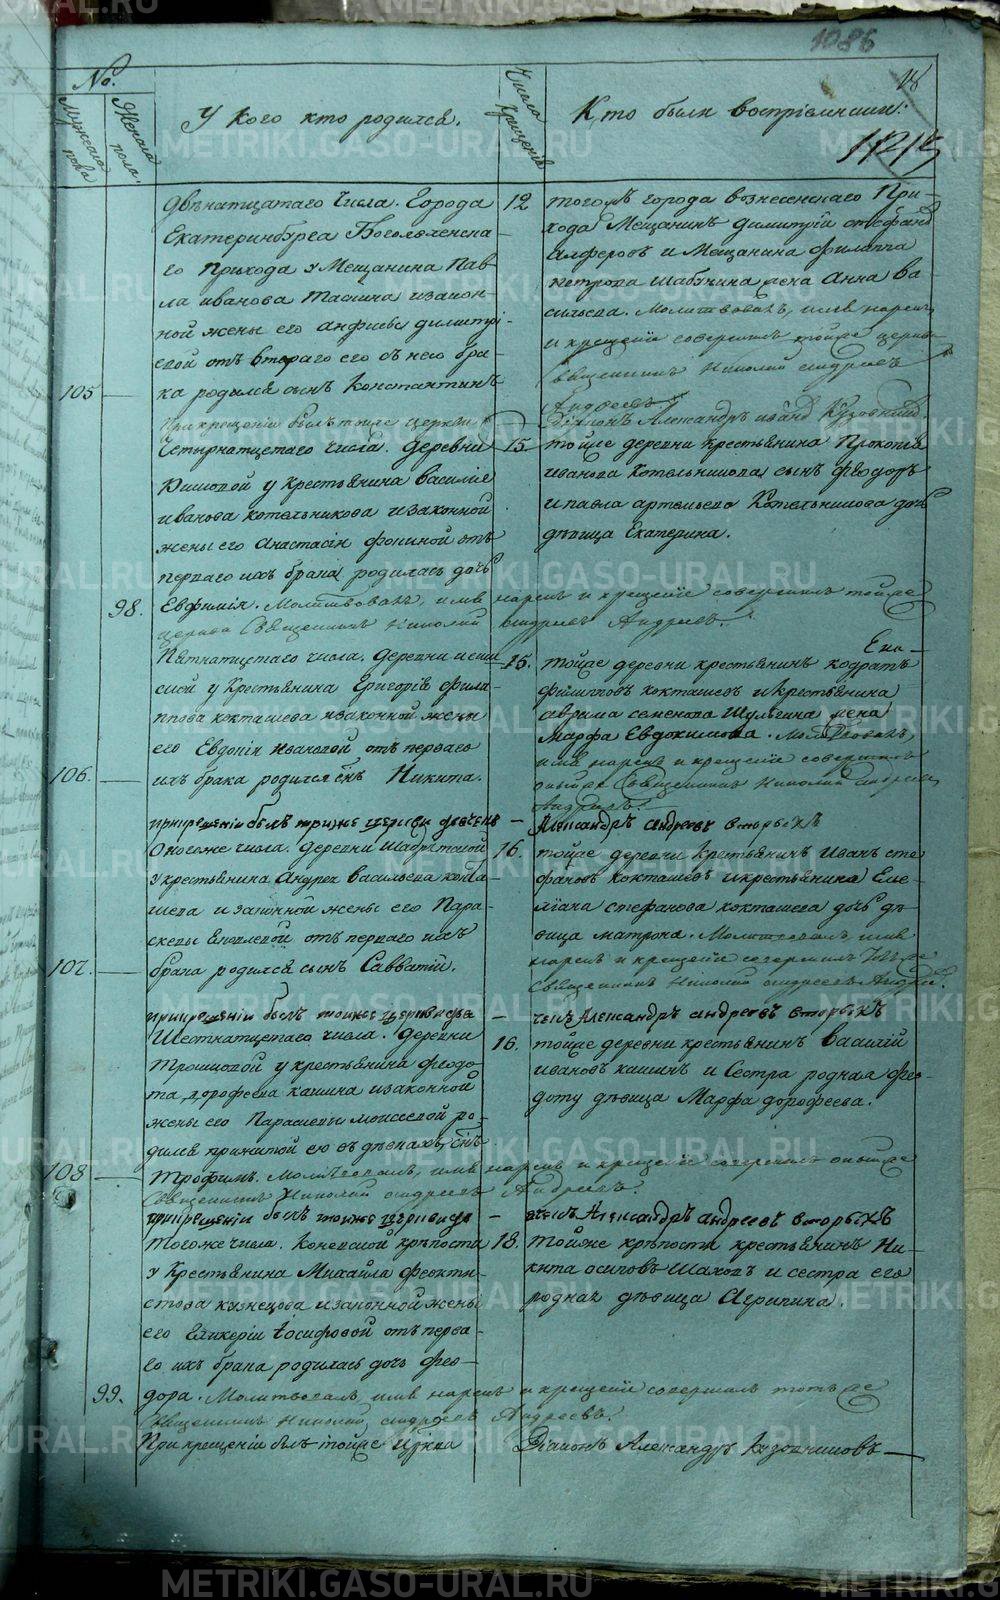 1086
18
№.
Мужеска пола
Женска пола.
У кого кто родился.
Числа Крещенiя
Кто были воспрiемники:
двѣнатцатаго Числа. Города
Екатеринбурга Богоявленска-
го прихода у Мещанина Пав-
ла иванова изакон-
ной жены его анфисы димитрi-
евой отъ втораго его съ нею бра-
105
ка родился сынъ Константинъ
12
тогожъ города вознесенскаго При-
хода Мещанинъ димитрiй стефановъ
алферовъ и Мещанина филиппа
петрова жена Анна ва-
сильева. Молитвовалъ, имя нарекъ,
и крещенiе совершилъ тойже церкви
Священникъ Николай андреевъ
Андреевъ
Дiаконъ Александръ Кузовниковъ.
При крещенiи былъ тойже церкви
Четырнатцатаго числа. деревни
у Крестьянина василiя
иванова котельникова изаконной
жены его Анастасiи фоминой отъ
перваго ихъ брака родилась дочь
98.
Евфимiя. Молитвовалъ, имя нарекъ и крещенiе совершилъ тойже
церкви Священникъ Николай андреевъ Андреевъ.
15.
тойже деревни крестьянина Прокопья
иванова котельникова сынъ феодоръ
и павла артемьева Котельникова дочь
дѣвица Екатерина.
Пятнатцатаго числа. деревни
у Крестьянина Григорiя фили-
ппова кокташева изаконной жены
его Евдокiи ивановой отъ перваго
106.
ихъ брака родился сынъ Никита.
15.
тойже деревни крестьянинъ кодратъ
филипповъ кокташевъ и крестьянина
семенова Шулгина жена
Марфа Евдокимова. Молитвовалъ,
имя нарекъ и крещенiе совершилъ
онъ же Священникъ Николай андреевъ
Андреевъ.
прикрещенiи былъ тойже церкви дьячекъ
Александръ андреевъ вторыхъ
Оногоже числа. деревни
у крестьянина Андрея васильева кокта-
шева и законной жены его Пара-
скевы отъ перваго ихъ
107.
брака родился сынъ Савватiй.
16.
тойже деревни Крестьянинъ Иванъ сте-
фановъ кокташевъ икрестьянина Еме-
лiана стефанова кокташева дочь дѣ-
вица матрона. Молитвовалъ, имя
нарекъ и крещенiе совершилъ тотъ же
Священникъ Николай андреевъ Андреевъ.
прикрещенiи былъ тойже церкви дья-
чекъ Александръ андреевъ вторыхъ
Шестнатцатаго числа. деревни
у крестьянина феодо-
та дорофеева кашина изаконной
жены его Параскевы моисеевой ро-
дился сынъ
108
Трофимъ. Молитвовалъ, имя нарекъ и крещенiе совершилъ онъ же
Священникъ Николай андреевъ Андреевъ.
16.
тойже деревни крестьянинъ Василiй
ивановъ кашинъ и Сестра родная фео-
доту дѣвица Марфа дорофеева.
прикрещенiи былъ тойже церкви дья-
чекъ Александръ андреевъ вторыхъ
Тогоже числа. крѣпости
у Крестьянина Михайла феокти-
стова казнецова изаконной жены
его Гликерiи Iосифовой отъ перва-
го ихъ брака родилась дочь фео-
99.
дора. Молитвовалъ, имя нарекъ и крещенiе совершилъ тотъ же
Священникъ Николай андреевъ Андреевъ.
18.
тойже крѣпости крестьянинъ Ни-
кита осиповъ и сестра его
родная дѣвица Агрипина.
При крещенiи былъ тойже Церкви
Дiаконъ Александръ Кузовниковъ
METRIKI.GASO-URAL.RU